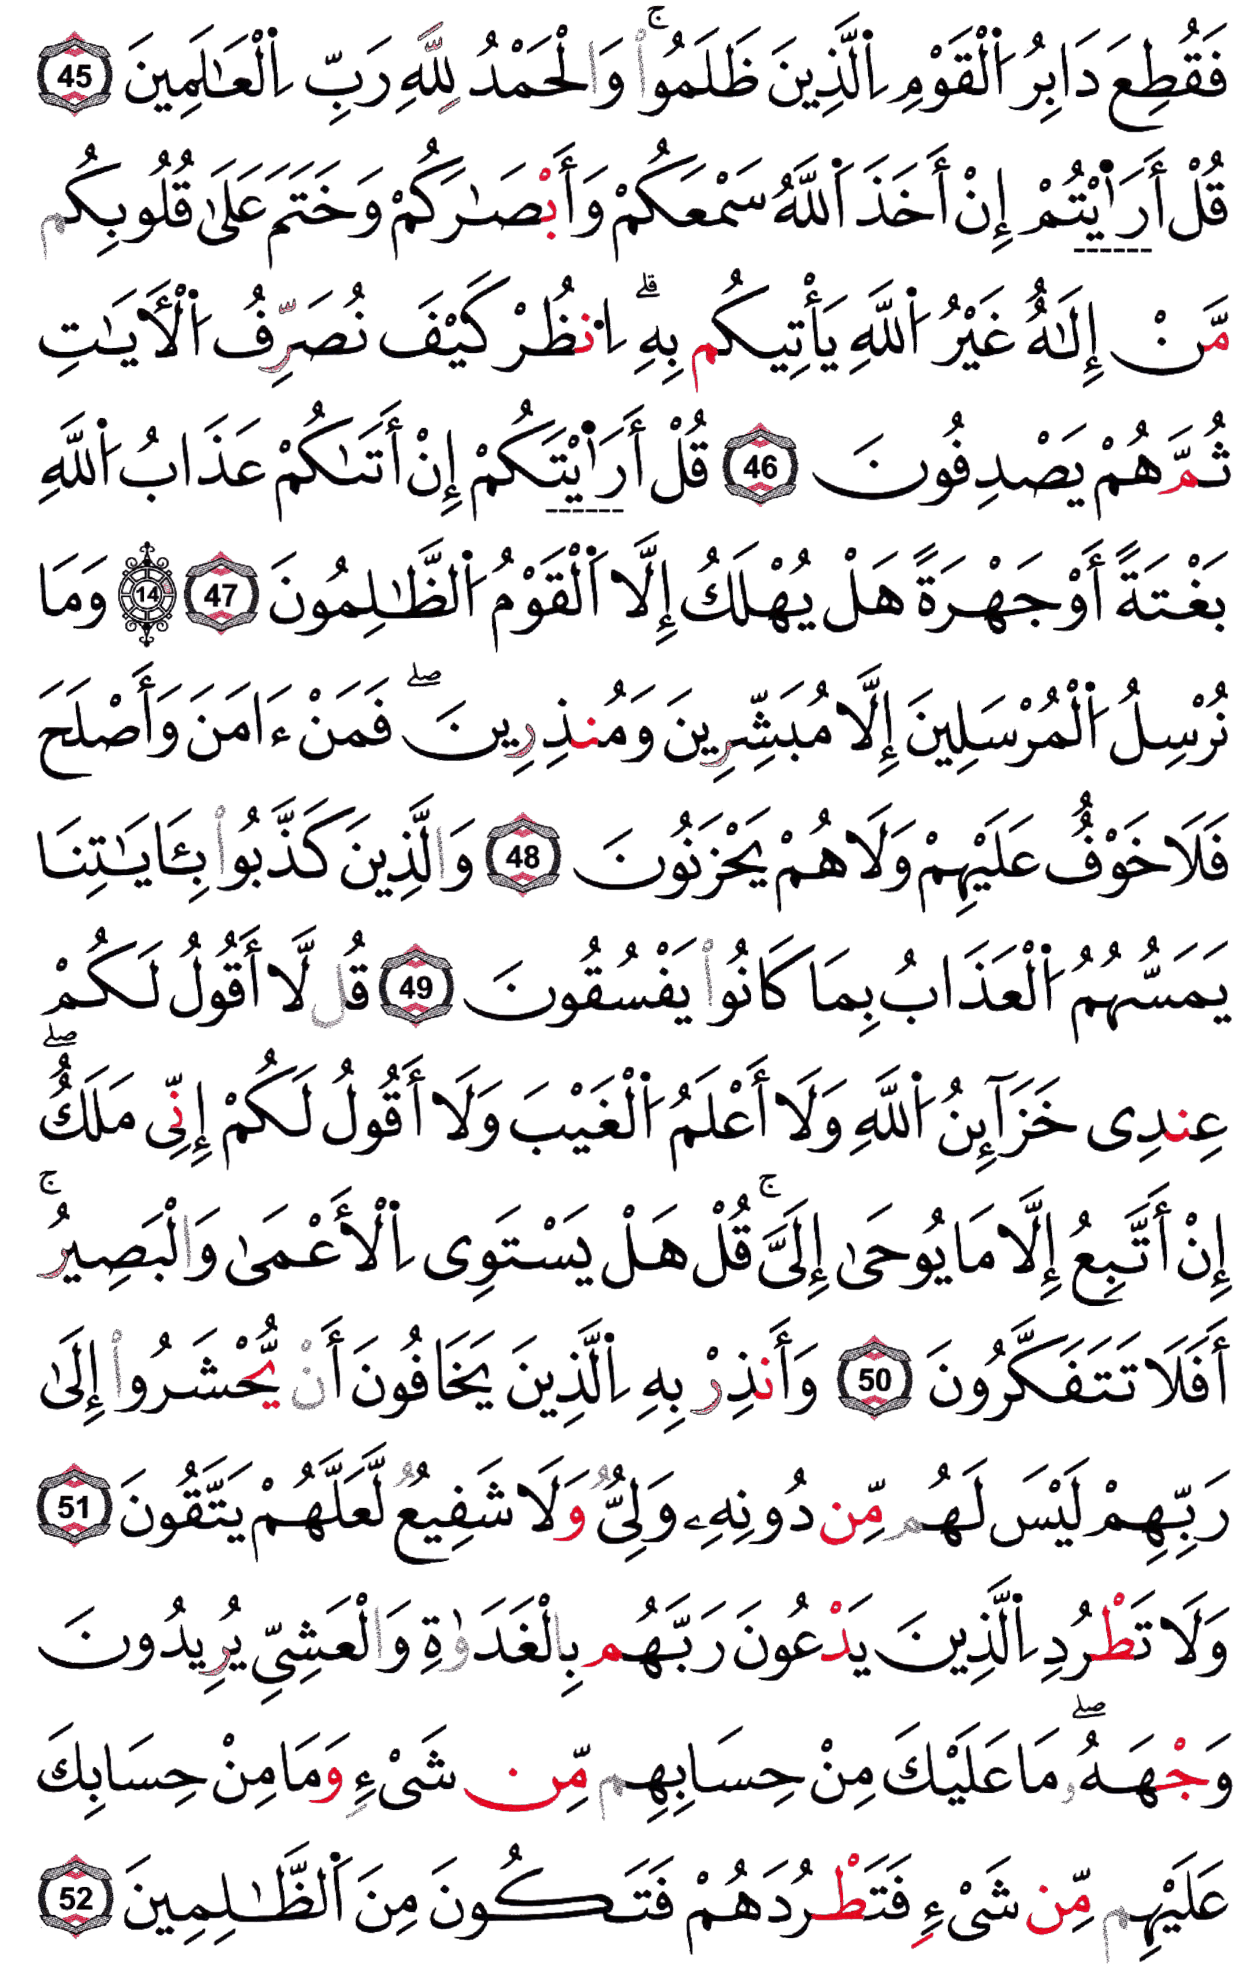 فَقُطِعَ دَابِرُ اُ۬لْقَوْمِ اِ۬لَّذِينَ ظَلَمُواْۚ وَالْحَمْدُ لِلَّهِ رَبِّ اِ۬لْعَٰلَمِينَ 45
قُلْ أَرَٰٓيْتُمْ إِنْ أَخَذَ اَ۬للَّهُ سَمْعَكُمْ وَأَبْصَٰرَكُمْ وَخَتَمَ عَلَىٰ قُلُوبِكُم
مَّنْ إِلَٰهٌ غَيْرُ اُ۬للَّهِ يَأْتِيكُم بِهِۗ اِ۟نظُرْ كَيْفَ نُصَرِّفُ اُ۬لْأَيَٰتِ
ثُمَّ هُمْ يَصْدِفُونَ 46 قُلْ أَرَٰيْتَكُمْ إِنْ أَتَىٰكُمْ عَذَابُ اُ۬للَّهِ
بَغْتَةً أَوْ جَهْرَةً هَلْ يُهْلَكُ إِلَّا اَ۬لْقَوْمُ اُ۬لظَّٰلِمُونَ 47 14 وَمَا
نُرْسِلُ اُ۬لْمُرْسَلِينَ إِلَّا مُبَشِّرِينَ وَمُنذِرِينَۖ فَمَنْ ءَامَنَ وَأَصْلَحَ
فَلَا خَوْفٌ عَلَيْهِمْ وَلَا هُمْ يَحْزَنُونَ 48 وَالَّذِينَ كَذَّبُواْ بِـَٔايَٰتِنَا
يَمَسُّهُمُ اُ۬لْعَذَابُ بِمَا كَانُواْ يَفْسُقُونَ 49 قُل لَّا أَقُولُ لَكُمْ
عِندِى خَزَآئِنُ اُ۬للَّهِ وَلَا أَعْلَمُ اُ۬لْغَيْبَ وَلَا أَقُولُ لَكُمْ إِنِّى مَلَكٌۖ
إِنْ أَتَّبِعُ إِلَّا مَا يُوحَىٰ إِلَىَّۚ قُلْ هَلْ يَسْتَوِى اِ۬لْأَعْمَىٰ وَالْبَصِيرُۚ
أَفَلَا تَتَفَكَّرُونَ 50 وَأَنذِرْ بِهِ اِ۬لَّذِينَ يَخَافُونَ أَنْ يُّحْشَرُواْ إِلَىٰ
رَبِّهِمْ لَيْسَ لَهُم مِّن دُونِهِۦ وَلِىٌّ وَلَا شَفِيعٌ لَّعَلَّهُمْ يَتَّقُونَ 51
وَلَا تَطْرُدِ اِ۬لَّذِينَ يَدْعُونَ رَبَّهُم بِالْغَدَوٰةِ وَالْعَشِىِّ يُرِيدُونَ
وَجْهَهُۥۖ مَا عَلَيْكَ مِنْ حِسَابِهِم مِّن شَىْءٍ وَمَا مِنْ حِسَابِكَ
عَلَيْهِم مِّن شَىْءٍ فَتَطْرُدَهُمْ فَتَكُونَ مِنَ اَ۬لظَّٰلِمِينَ 52